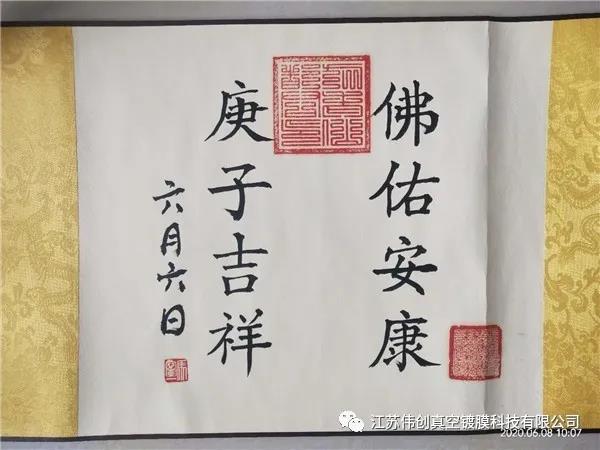 佛佑安康
庚子吉祥
六月六日
江苏伟创真空镀膜科技有限公司
2020.06.08 10:07